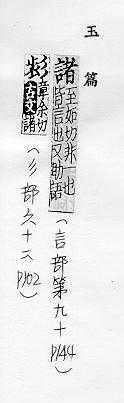 玉篇
諸
至如切非一也
皆言也又助語
(言部第九十 P144)
章余切
古文諸
(彡部六十二 P102)